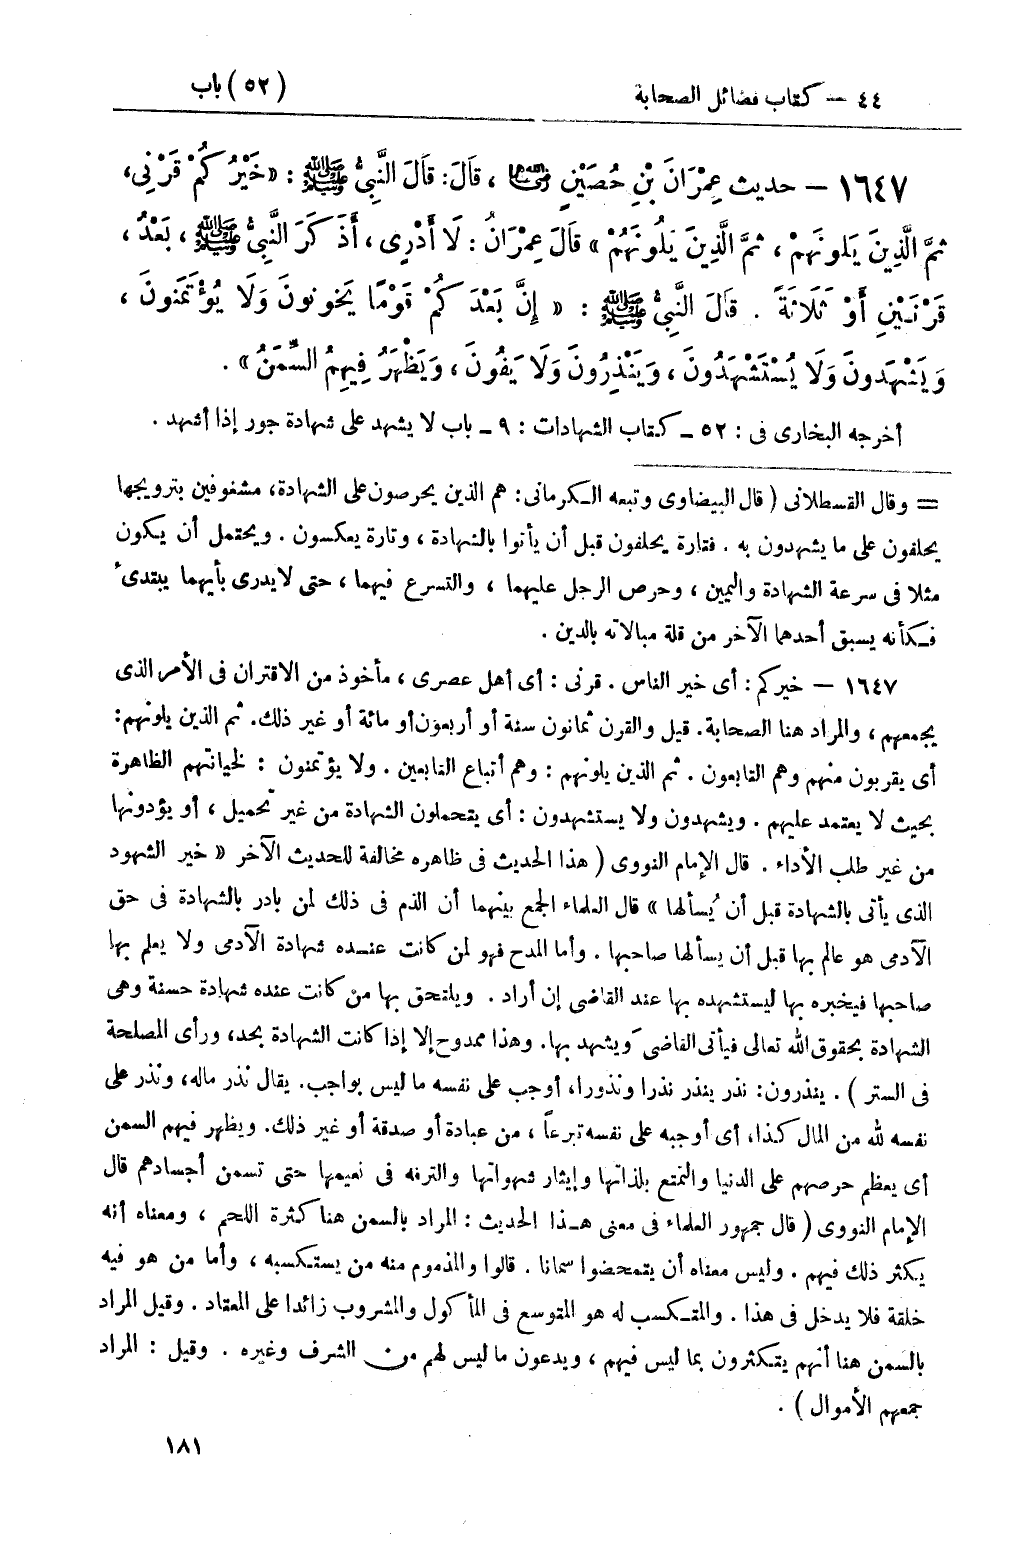 ٤٤ – كتاب فضائل الصحابة
(٥٢) باب
١٦٤٧ – حديث عِمْرَانَ بْنِ حُصَيْنٍ رضي الله عنهما ، قَالَ: قَالَ النَّبِيُّ ﷺ : « خَيْرُكُمْ قَرْنِي،
ثُمَّ الَّذِينَ يَلُونَهُمْ ، ثُمَّ الَّذِينَ يَلُونَهُمْ » قَالَ عِمْرَانُ : لَا أَدْرِي ، أَذَكَرَ النَّبِيُّ ﷺ ، بَعْدُ ،
قَرْنَيْنِ أَوْ ثَلَاثَةً . قَالَ النَّبِيُّ ﷺ : « إِنَّ بَعْدَكُمْ قَوْمًا يَخُونُونَ وَلَا يُؤْتَمَنُونَ ،
وَيَشْهَدُونَ وَلَا يُسْتَشْهَدُونَ ، وَيَنْذِرُونَ وَلَا يَفُونَ ، وَيَظْهَرُ فِيهِمُ السِّمَنُ » .
أخرجه البخارى فى : ٥٢ ــ كتاب الشهادات : ٩ ــ باب لا يشهد على شهادة جور إذا أشهد .
= وقال القسطلانى ( قال البيضاوى وتبعه الكرمانى : هم الذين يحرصون على الشهادة، مشغوفين بترويجها
يحلفون على ما يشهدون به . فتارة يحلفون قبل أن يأتوا بالشهادة ، وتارة يعكسون . ويحتمل أن يكون
مثلا فى سرعة الشهادة واليمين ، وحرص الرجل عليهما ، والتسرع فيهما ، حتى لا يدرى بأيهما يبتدىء
فكأنه يسبق أحدهما الآخر من قلة مبالاته بالدين .
١٦٤٧ – خيركم : أى خير الناس . قرنى : أى أهل عصرى ، مأخوذ من الاقتران فى الأمر الذى
يجمعهم ، والمراد هنا الصحابة. قيل والقرن ثمانون سنة أو أربعون أو مائة أو غير ذلك. ثم الذين يلونهم:
أى يقربون منهم وهم التابعون . ثم الذين يلونهم : وهم أتباع التابعين . ولا يؤتمنون : لخيانتهم الظاهرة
بحيث لا يعتمد عليهم . ويشهدون ولا يستشهدون : أى يتحملون الشهادة من غير تحميل ، أو يؤدونها
من غير طلب الأداء . قال الإمام النووى ( هذا الحديث فى ظاهره مخالفة للحديث الآخر « خير الشهود
الذى يأتى بالشهادة قبل أن يُسألها » قال العلماء الجمع بينهما أن الذم فى ذلك لمن بادر بالشهادة فى حق
الآدمى هو عالم بها قبل أن يسألها صاحبها . وأما المدح فهو لمن كانت عنده شهادة الآدمى ولا يعلم بها
صاحبها فيخبره بها ليستشهده بها عند القاضى إن أراد . ويلتحق بها من كانت عنده شهادة حسنة وهى
الشهادة بحقوق الله تعالى فيأتى القاضى ويشهد بها. وهذا ممدوح إلا إذا كانت الشهادة بحد، ورأى المصلحة
فى الستر ) . ينذرون: نذر ينذر نذرا ونذورا، أوجب على نفسه ما ليس بواجب. يقال نذر ماله، ونذر على
نفسه لله من المال كذا، أى أوجبه على نفسه تبرعاً ، من عبادة أو صدقة أو غير ذلك. ويظهر فيهم السمن
أى يعظم حرصهم على الدنيا والتمتع بلذاتها وإيثار شهواتها والترفه فى نعيمها حتى تسمن أجسادهم قال
الإمام النووى ( قال جمهور العلماء فى معنى هذا الحديث : المراد بالسمن هنا كثرة اللحم ، ومعناه أنه
يكثر ذلك فيهم . وليس معناه أن يتمحضوا سمانا . قالوا والمذموم منه من يستكسبه ، وأما من هو فيه
خلقة فلا يدخل فى هذا . والمتكسب له هو المتوسع فى المأكول والمشروب زائدا على المعتاد . وقيل المراد
بالسمن هنا أنهم يتكثرون بما ليس فيهم ، ويدعون ما ليس لهم من الشرف وغيره . وقيل : المراد
جمعهم الأموال ) .
١٨١